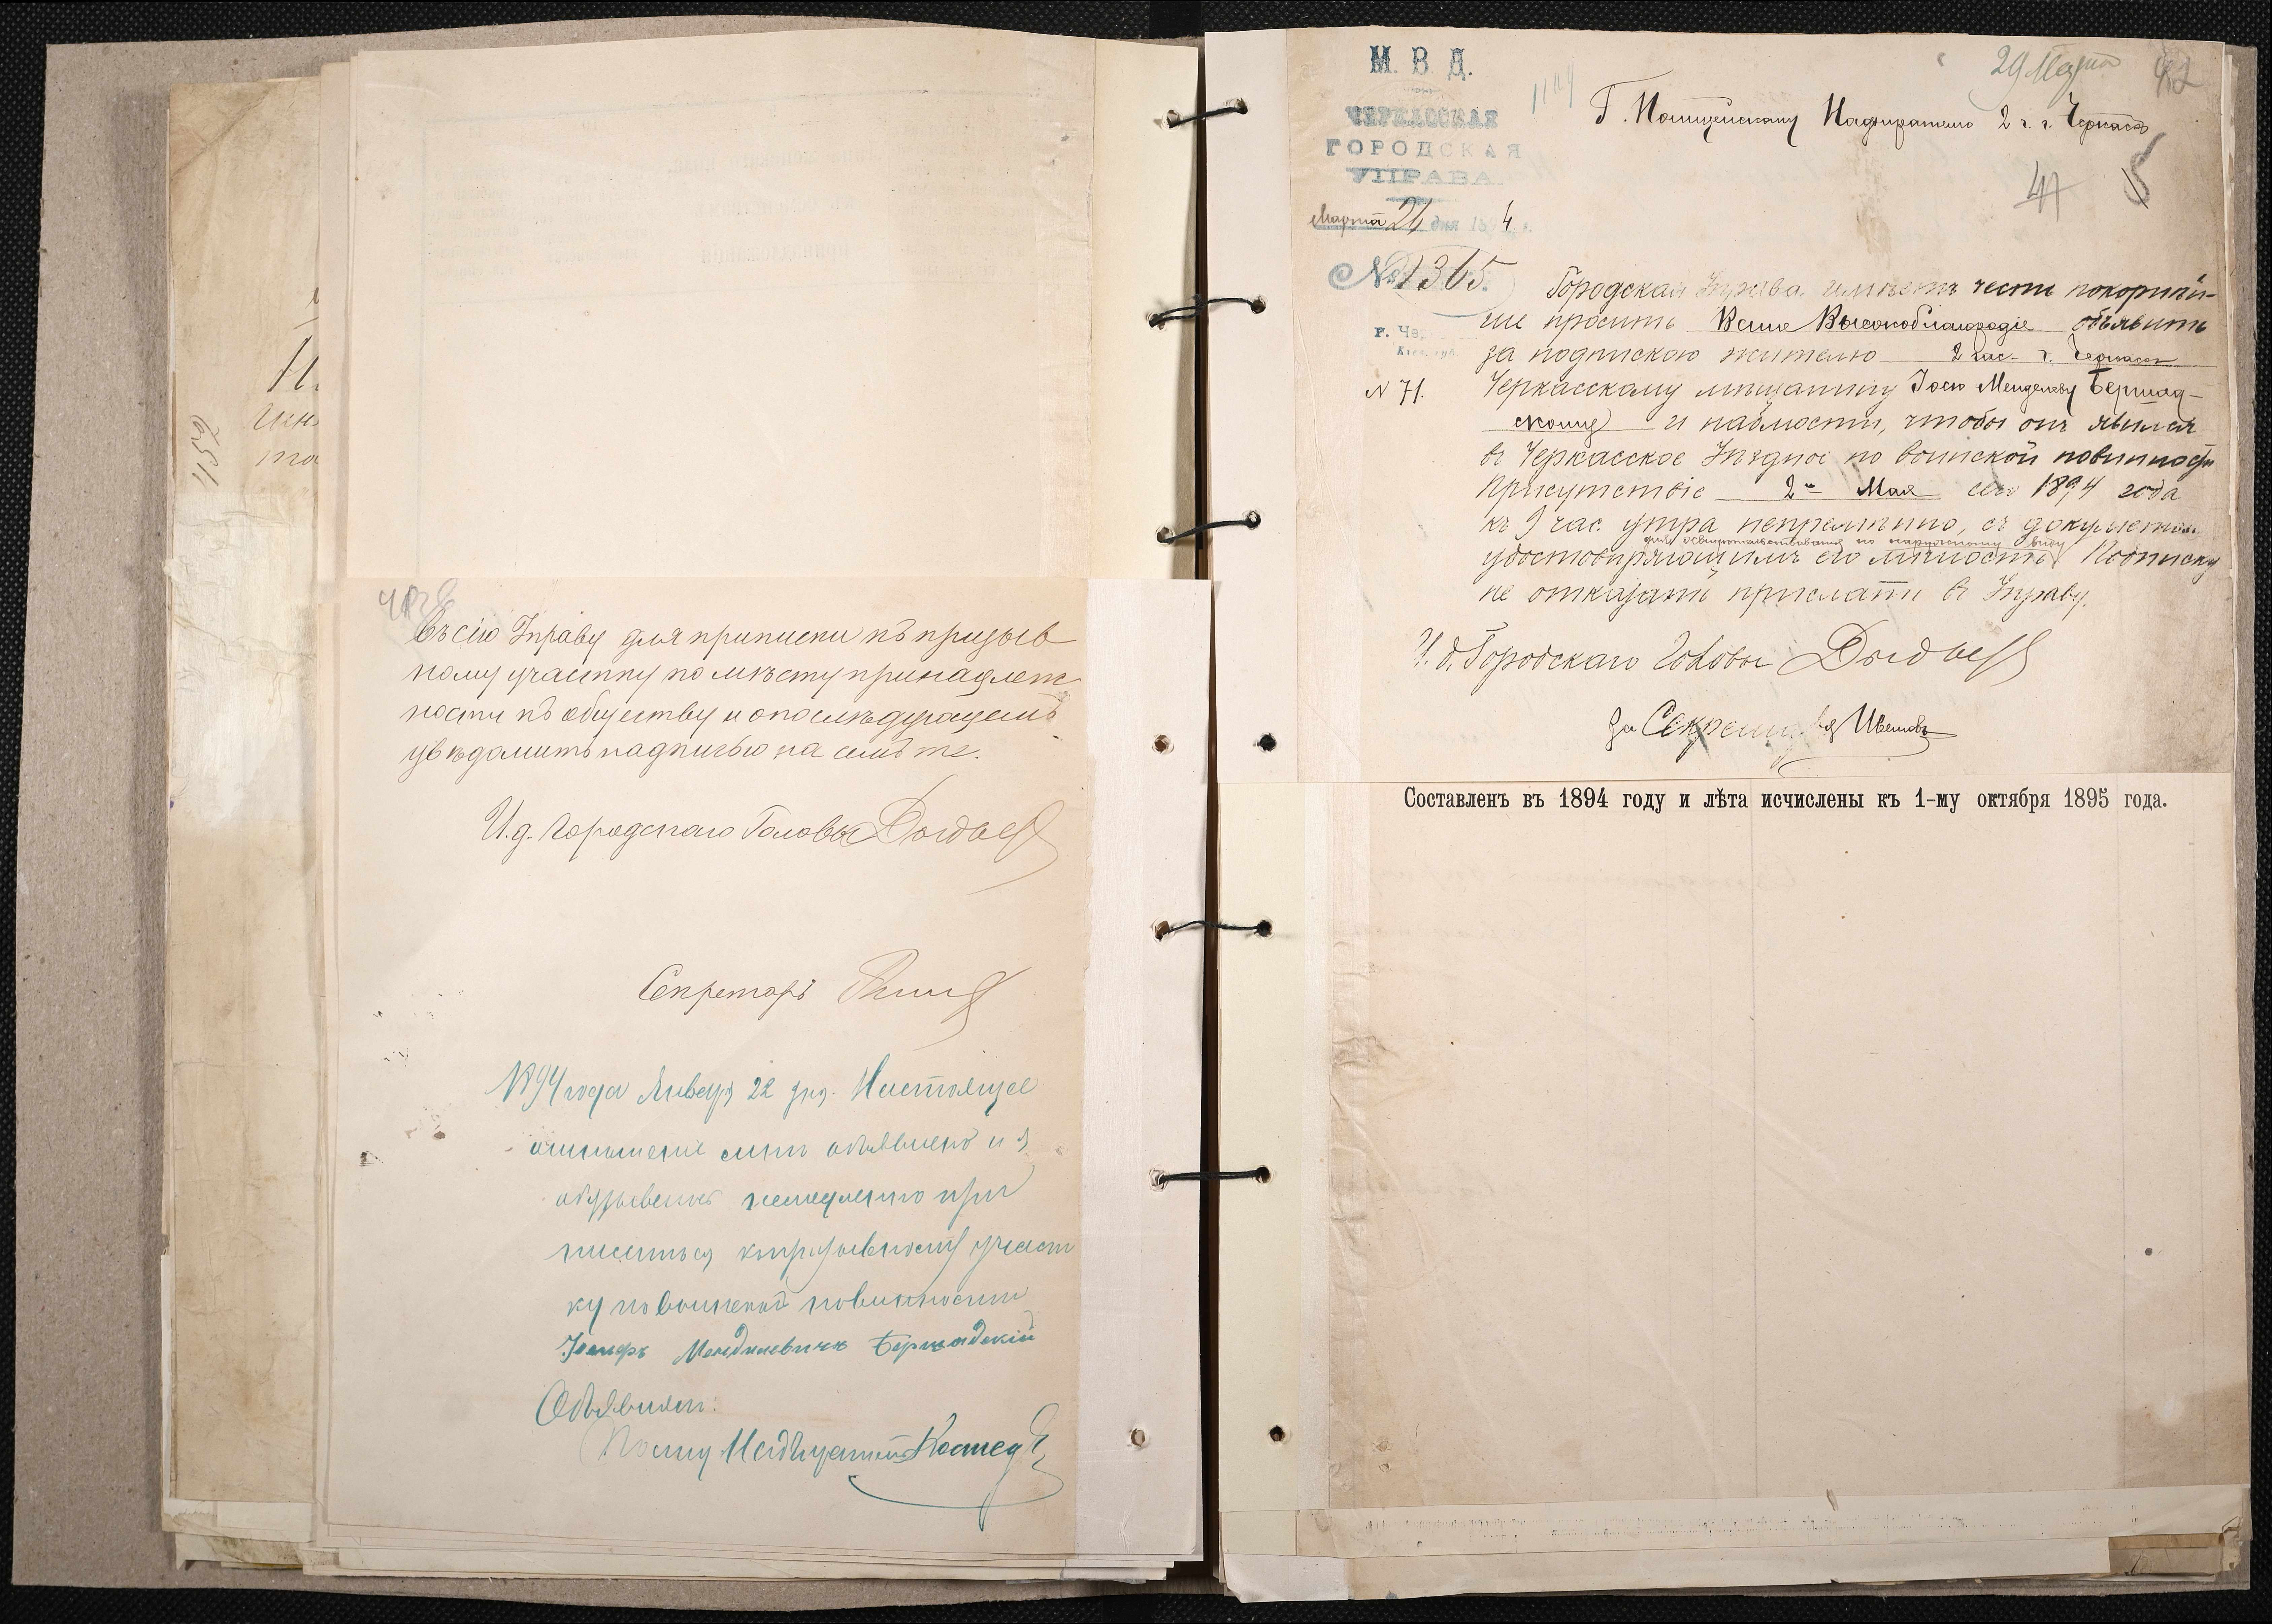 въ сію Управу для приписки къ призыв
ному участку по мѣсту принадлеж
ности къ обществу и о послѣдующемъ
увѣдомить надписью на семъ же.
И.д. Городскаго Головы
Секретарь
1894 года Января 22 дня. Настоящее
отношение мнѣ объявлено и я
обязываюсь немедленно при
писаться къ призывному участ
ку по воинской повинности
Іосифъ Менделевичъ Бершадскій
Объявилъ:
1159
М. В. Д.
ЧЕРКАССКАЯ
ГОРОДСКАЯ
УПРАВА.
Марта 24 дня 1894 г.
№ 1365.
г. Чер
Кіев. губ.
N 71.
29 Марта
42
Г. Полицейскому Надзирателю 2 ч. г. Черкассъ
41
Городская Управа имѣетъ честь покорнѣй-
ше проситъ Ваше Высокоблагородіе объявить
за подпискою жителю 2 час. г. Черкассъ
Черкасскому мѣщанину Іосю Менделеву Бершад-
скому и наблюсти, чтобы онъ явился
въ Черкасское Уѣздное по воинской повинности
Присутствіе 2го Мая сего 1894 года
къ 9 час. утра непремѣнно, съ документомъ
для освидѣтельствованія по наружному виду
удостовѣряющимъ его личность. Подписку
не отказать прислать въ Управу.
И. д. Городскаго Головы
За Секретаря
Составленъ въ 1894 году и лѣта исчислены къ 1-му октября 1895 года.